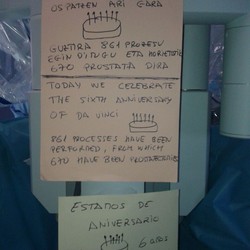 OSPATZEN ARI GARA
GUZTIRA 861 PROZESU
EGIN DITUGU ETA HORIETATIK
670 PROSTATA DIRA
TODAY WE CELEBRATE
THE SIXTH ANNIVERSARY
OF DA VINCI
861 PROCESSES HAVE BEEN
PERFORMED, FROM WHICH
670 HAVE BEEN PROSTATECTOMIES
ESTAMOS DE
ANIVERSARIO
6 AÑOS